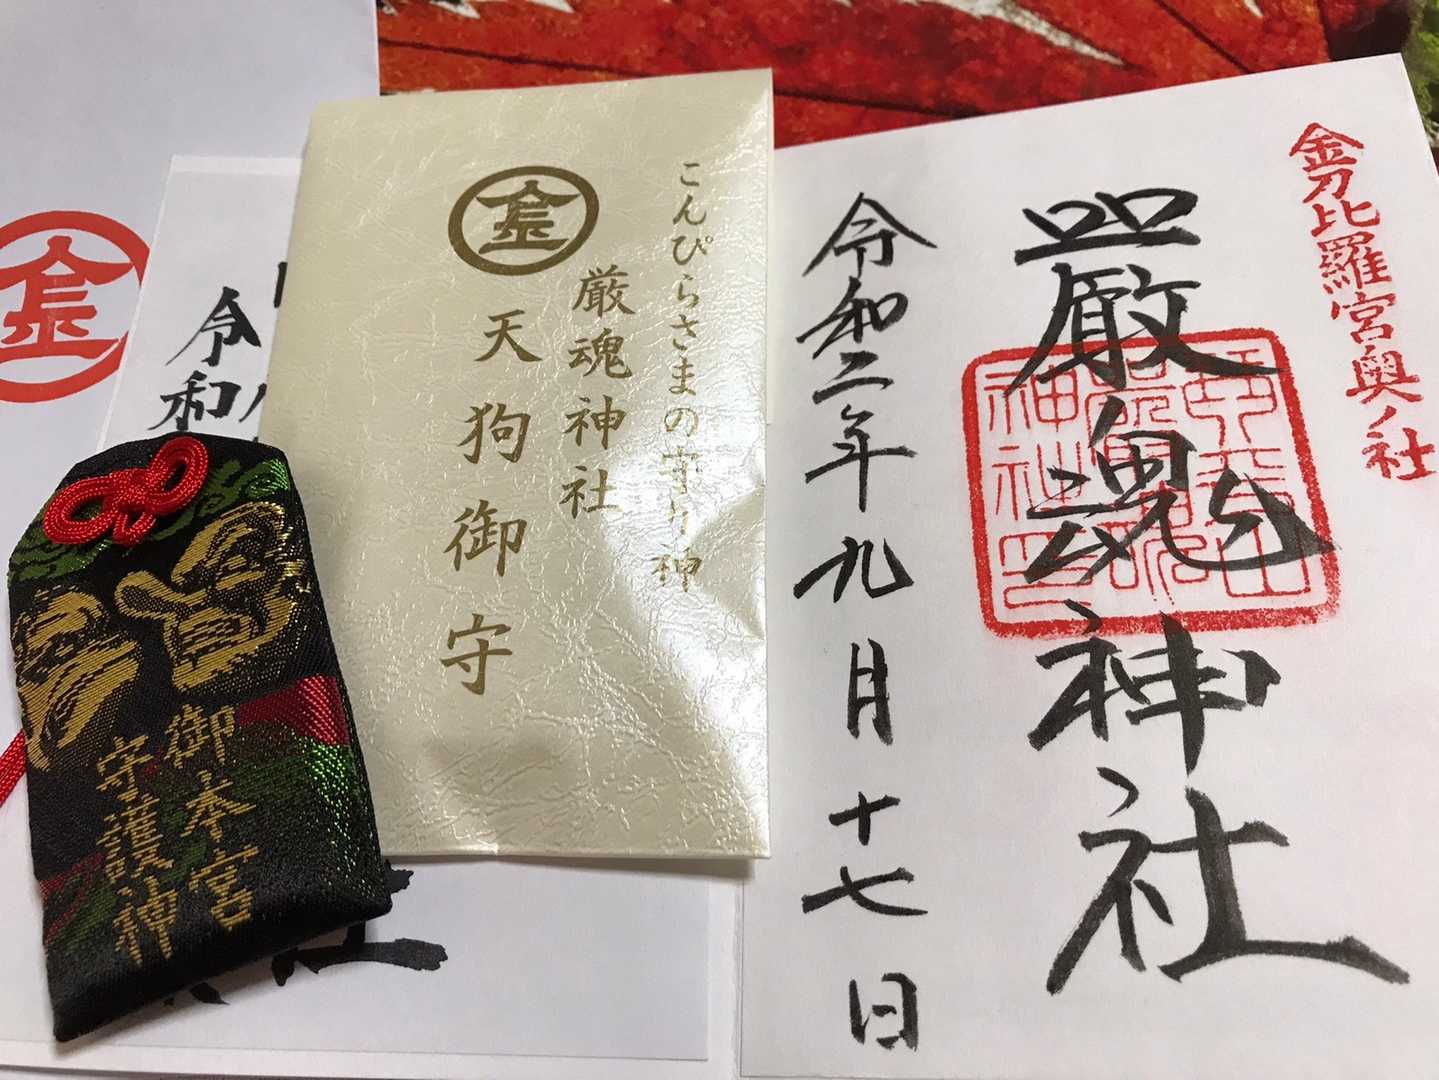 金刀比羅宮奥ノ社
嚴魂神社
令和二年九月十七日
こんぴらさまの守り神
厳魂神社
天狗御守
金
御本宮
守護神
令和
金